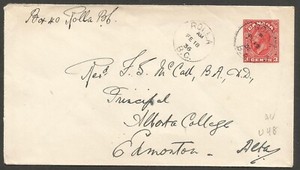 Box 40 Rolla B.C.
ROLLA
AM
FE 18
36
B.C.
CANADA
3 CENTS 3
Rev. F. S. McCall, B.A., D.D.,
Principal
Alberta College
Edmonton
Alta
U48